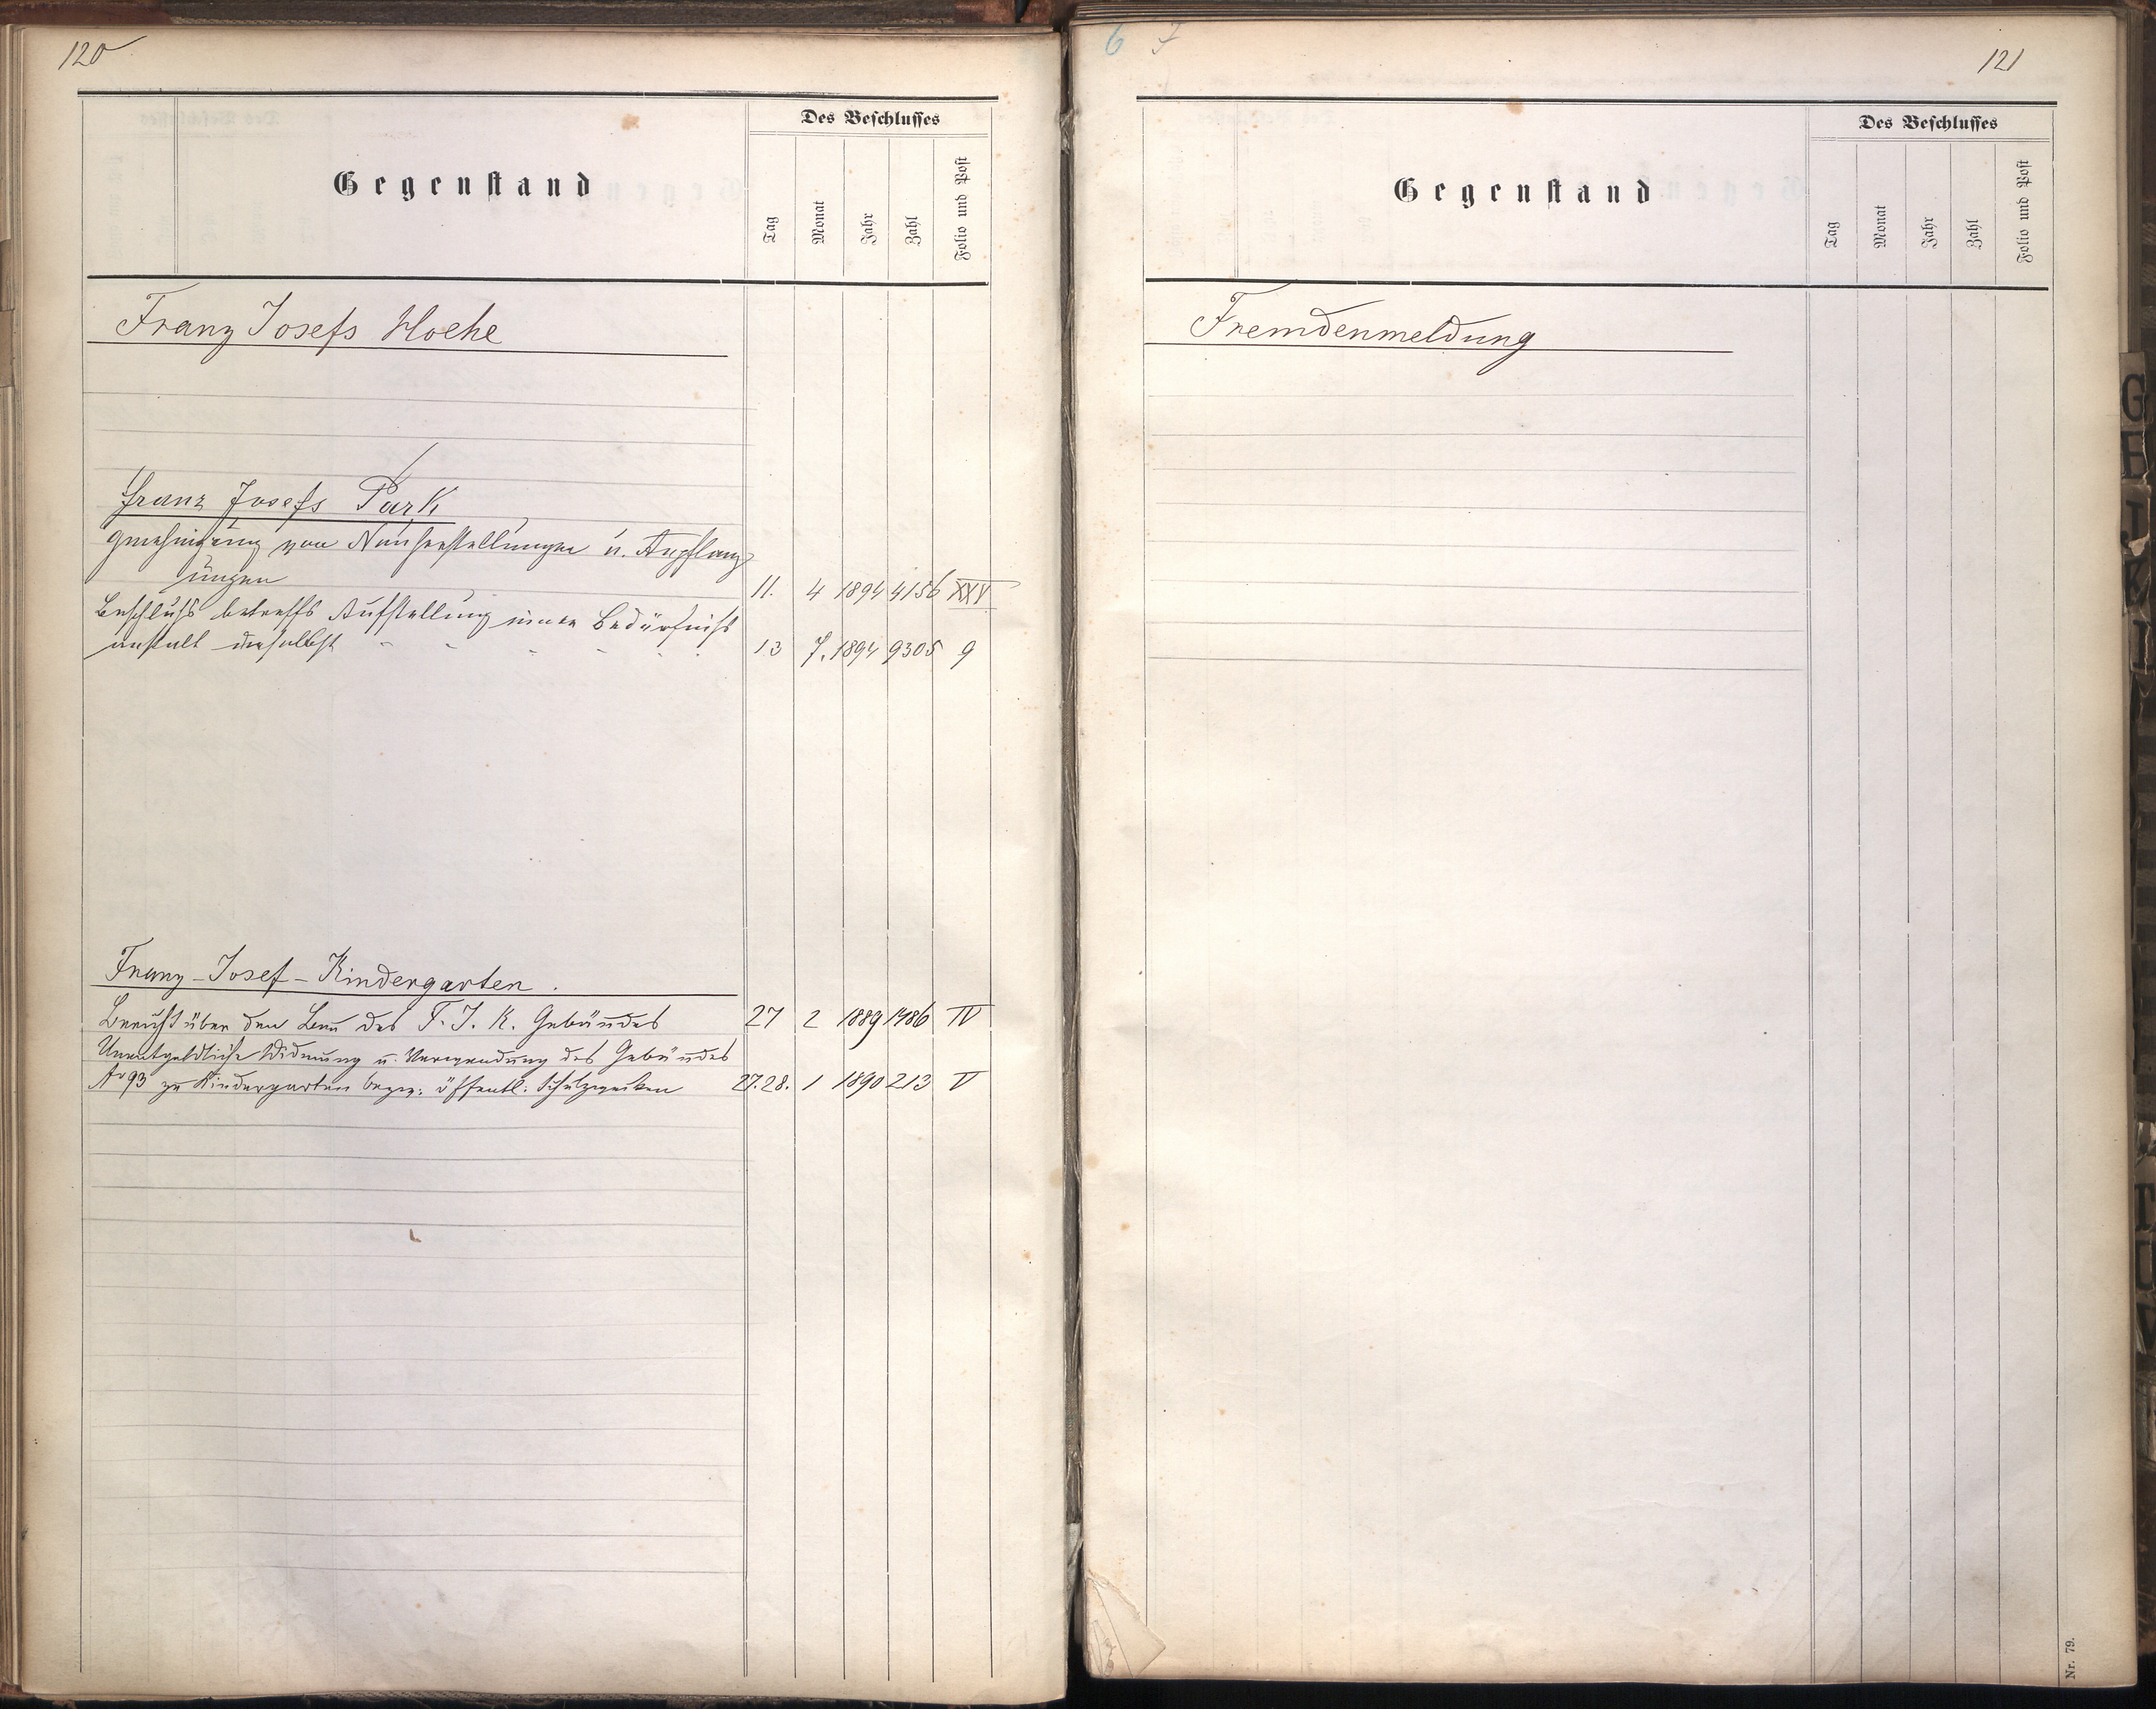 120
Gegenstand
Des Beschlusses
Tag
Monat
Jahr
Zahl
Folio und Post
Franz Josefs Hoehe
Franz Josefs Park
Genehmigung von Neuherstellungen u. Anpflanz
ungen 11. 4 1894 4156 XXV
Beschluß betreffs Aufstellung einer Bedürfniß
anstalt daselbst 13 7. 1894 9305 9
Franz-Josef-Kindergarten.
Bericht über den Bau des F. J. K. Gebäudes 27 2 1889 1486 IV
Unentgeldliche Widmung u. Verwendung des Gebäudes
No 93 zu Kindergarten bezw: öffentl: Schulzwecken 27.28. 1 1890 213 V
6 7
121
Gegenstand
Des Beschlusses
Tag
Monat
Jahr
Zahl
Folio und Post
Fremdenmeldung
Nr. 79.